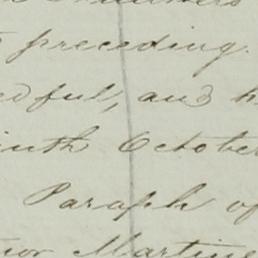 preceding.
edful, and h
inth October
Paraph of
ior Martine